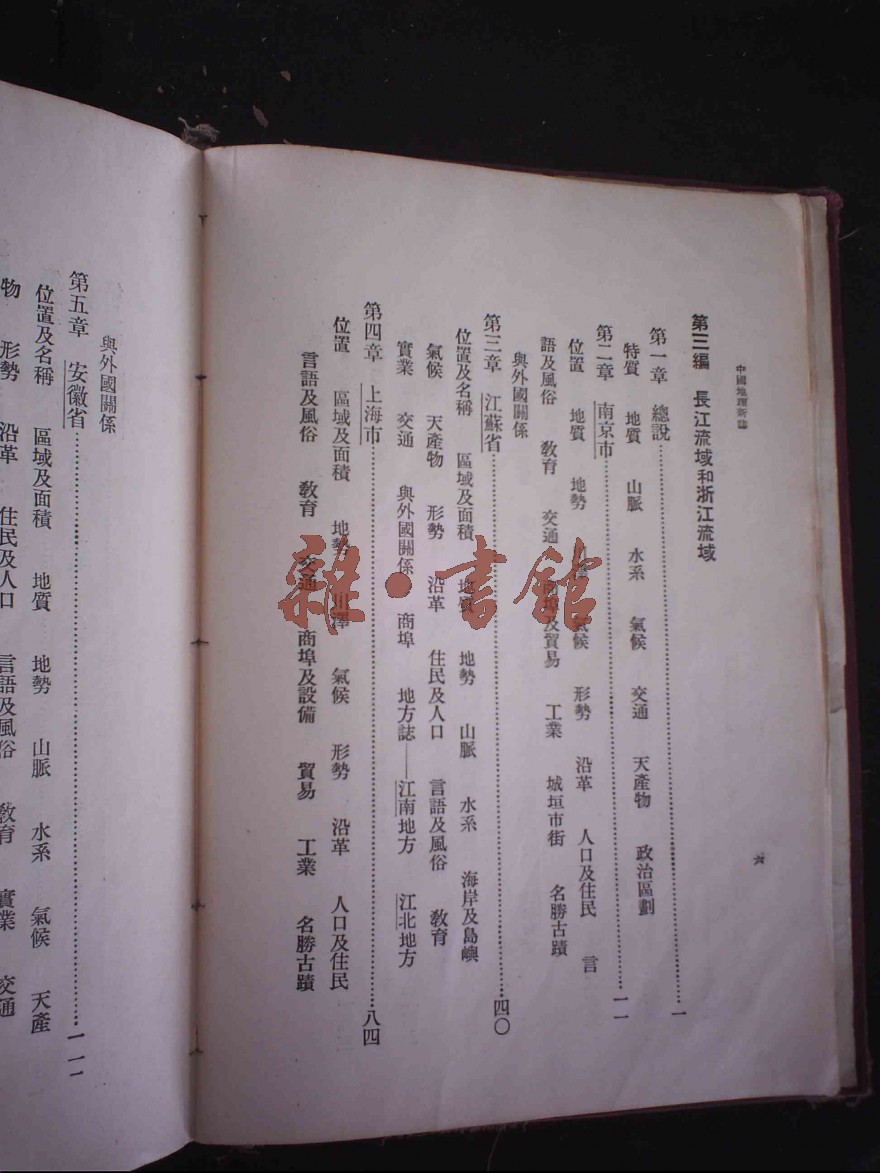 中國地理新誌
六
第三編 長江流域和浙江流域
第一章 總說……一
特質 地質 山脈 水系 氣候 交通 天產物 政治區劃
第二章 南京市……一一
位置 地質 地勢 氣候 形勢 沿革 人口及住民 言
語及風俗 教育 交通 商埠及貿易 工業 城垣市街 名勝古蹟
與外國關係
第三章 江蘇省……四〇
位置及名稱 區域及面積 地質 地勢 山脈 水系 海岸及島嶼
氣候 天產物 形勢 沿革 住民及人口 言語及風俗 教育
實業 交通 與外國關係 商埠 地方誌——江南地方 江北地方
第四章 上海市……八四
位置 區域及面積 地勢 川澤 氣候 形勢 沿革 人口及住民
言語及風俗 教育 交通 商埠及設備 貿易 工業 名勝古蹟
與外國關係
第五章 安徽省……一一一
位置及名稱 區域及面積 地質 地勢 山脈 水系 氣候 天產
物 形勢 沿革 住民及人口 言語及風俗 教育 實業 交通
雜·書館